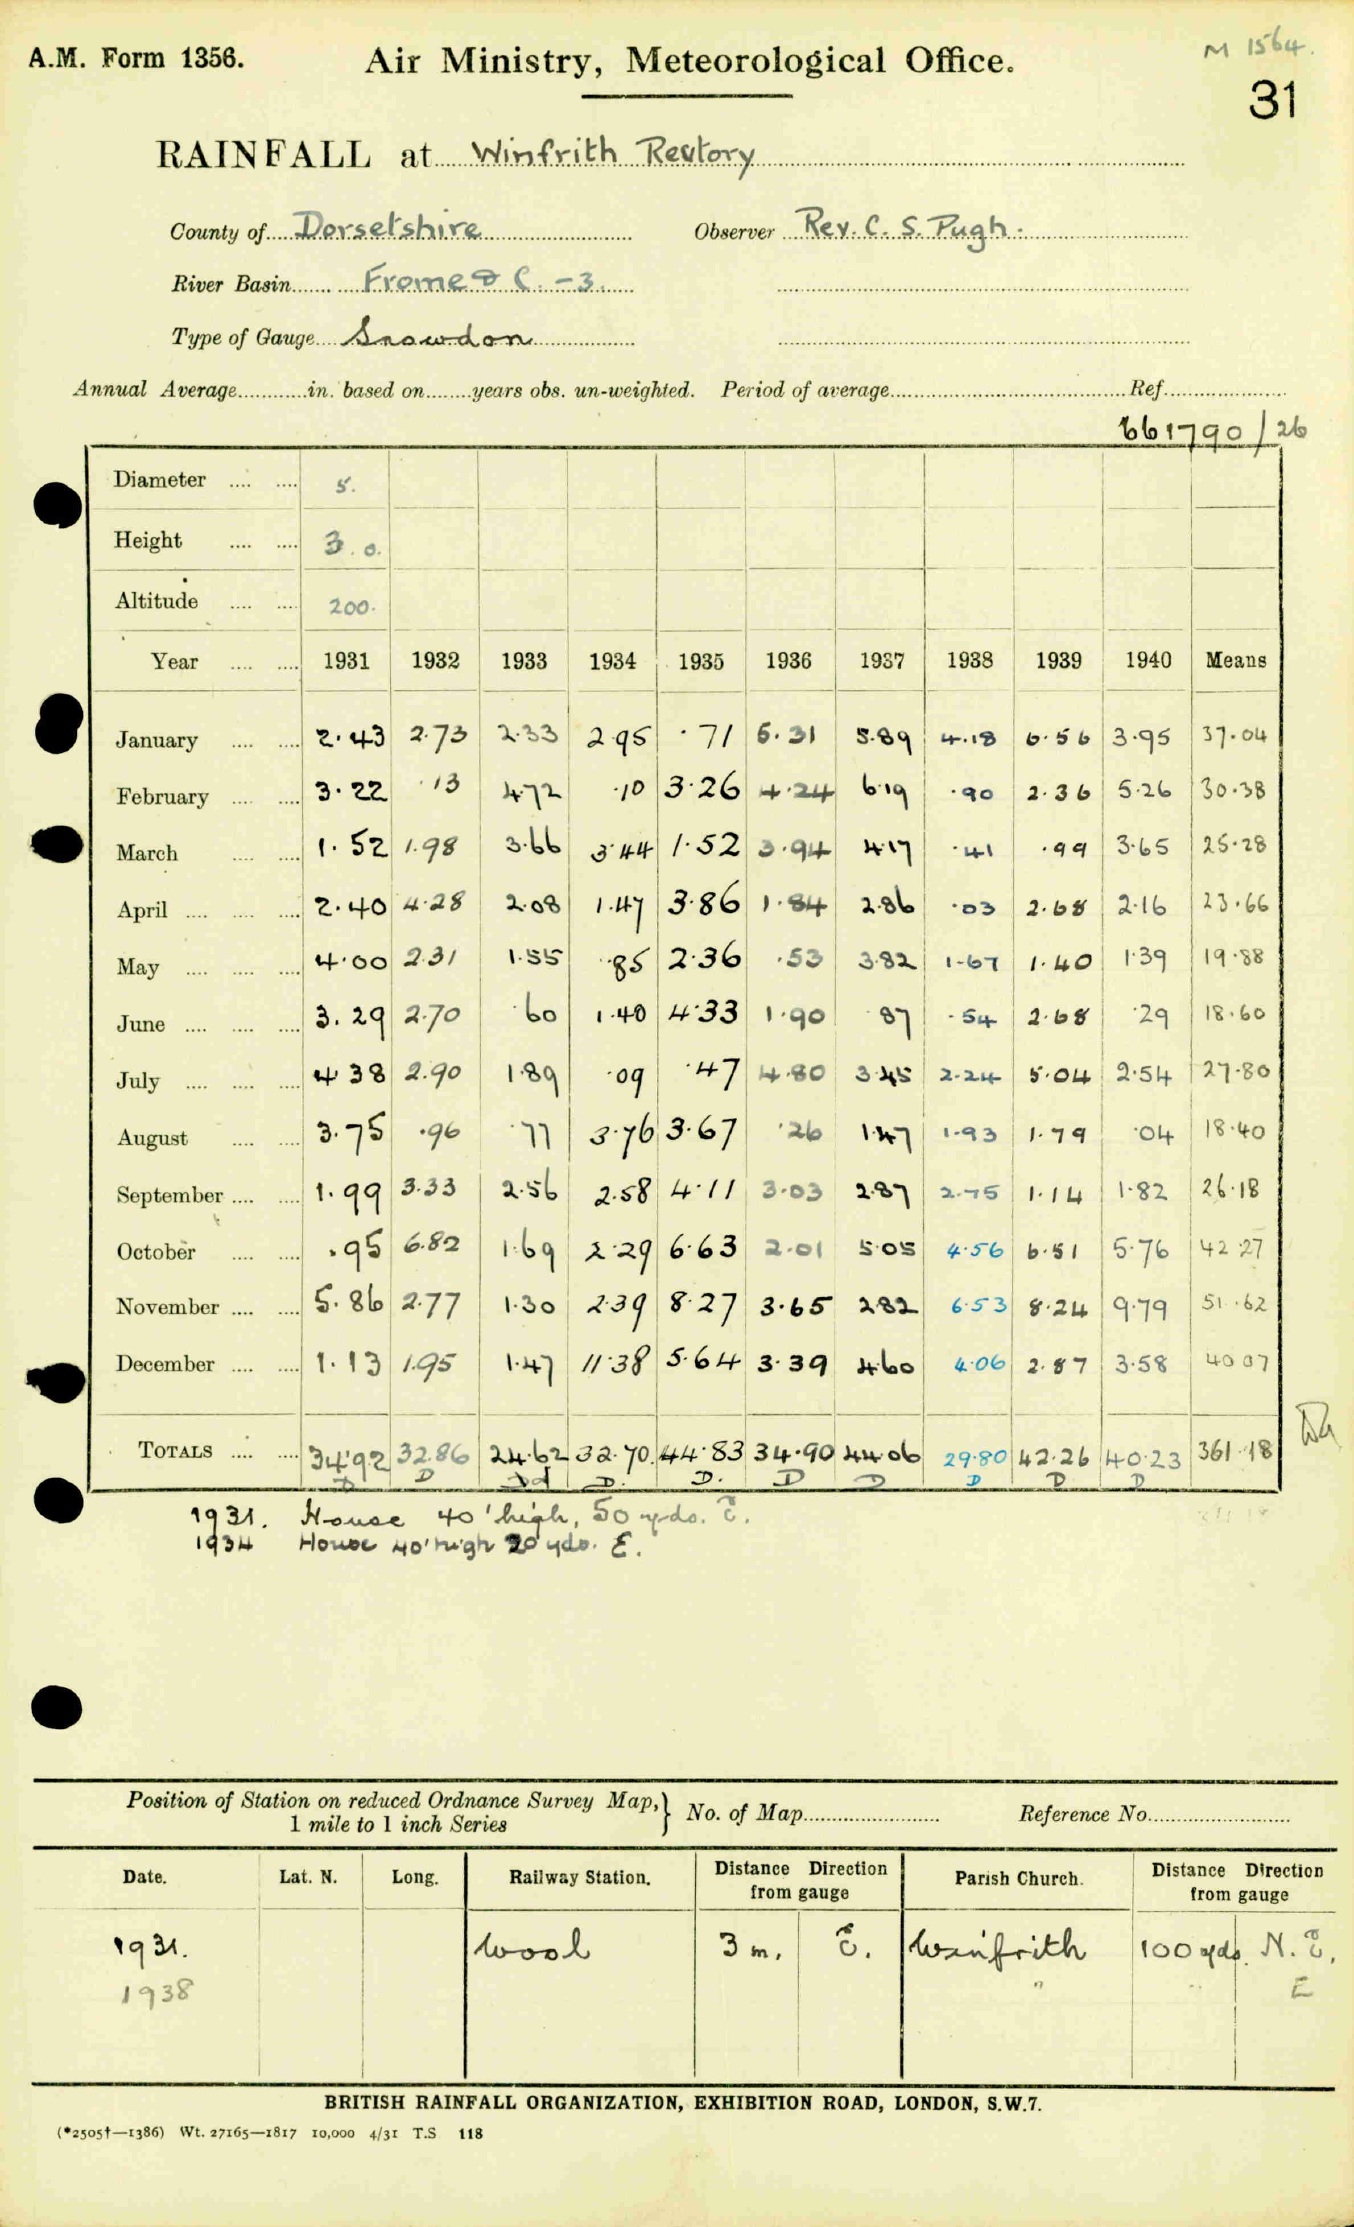 M 1564.
A.M. Form 1356. Air Ministry, Meteorological Office.
31
RAINFALL at Winfrith Rectory
County of Dorsetshire Observer Rev. C. S. Pugh.
River Basin Frome & C. -3.
Type of Gauge Snowdon
Annual Average............in. based on........years obs. un-weighted. Period of average.............Ref.............
661790/26
Diameter .... .... 5.
Height .... .... 3.0.
Altitude .... .... 200.
Year .... .... 1931 1932 1933 1934 1935 1936 1937 1938 1939 1940 Means
January .... .... 2.43 2.73 2.33 2.95 .71 5.31 5.89 4.18 6.56 3.95 37.04
February .... .... 3.22 .13 4.72 .10 3.26 4.24 6.19 .90 2.36 5.26 30.38
March .... .... 1.52 1.98 3.66 3.44 1.52 3.94 4.17 .41 .99 3.65 25.28
April .... .... .... 2.40 4.28 2.08 1.47 3.86 1.84 2.86 .03 2.68 2.16 23.66
May .... .... .... 4.00 2.31 1.55 .85 2.36 .53 3.82 1.67 1.40 1.39 19.88
June .... .... .... 3.29 2.70 .60 1.40 4.33 1.90 .87 .54 2.68 .29 18.60
July .... .... .... 4.38 2.90 1.89 .09 .47 4.80 3.45 2.24 5.04 2.54 27.80
August .... .... 3.75 .96 .77 3.76 3.67 .26 1.47 1.93 1.79 .04 18.40
September .... .... 1.99 3.33 2.56 2.58 4.11 3.03 2.87 2.75 1.14 1.82 26.18
October .... .... .95 6.82 1.69 2.29 6.63 2.01 5.05 4.56 6.51 5.76 42.27
November .... .... 5.86 2.77 1.30 2.39 8.27 3.65 2.82 6.53 8.24 9.79 51.62
December .... .... 1.13 1.95 1.47 11.38 5.64 3.39 4.60 4.06 2.87 3.58 40.07
TOTALS .... .... 34.92 32.86 24.62 32.70 44.83 34.90 44.06 29.80 42.26 40.23 361.18
D D D D. D. D D D D D
1931. House 40' high, 50 yds. E.
1934 House 40' high 20 yds. E.
Position of Station on reduced Ordnance Survey Map, 1 mile to 1 inch Series } No. of Map............ Reference No.............
Date. Lat. N. Long. Railway Station. Distance Direction from gauge Parish Church. Distance Direction from gauge
1931. Wool 3 m. E. Winfrith 100 yds. N. E.
1938 " " E
BRITISH RAINFALL ORGANIZATION, EXHIBITION ROAD, LONDON, S.W.7.
(*2505†—1386) Wt. 27165—1817 10,000 4/31 T.S 118